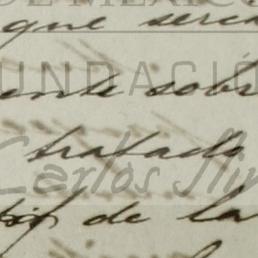 DE MÉXICO
que serca
FUNDACIÓ
ente sobr
tratado
Carlos Slim
de la